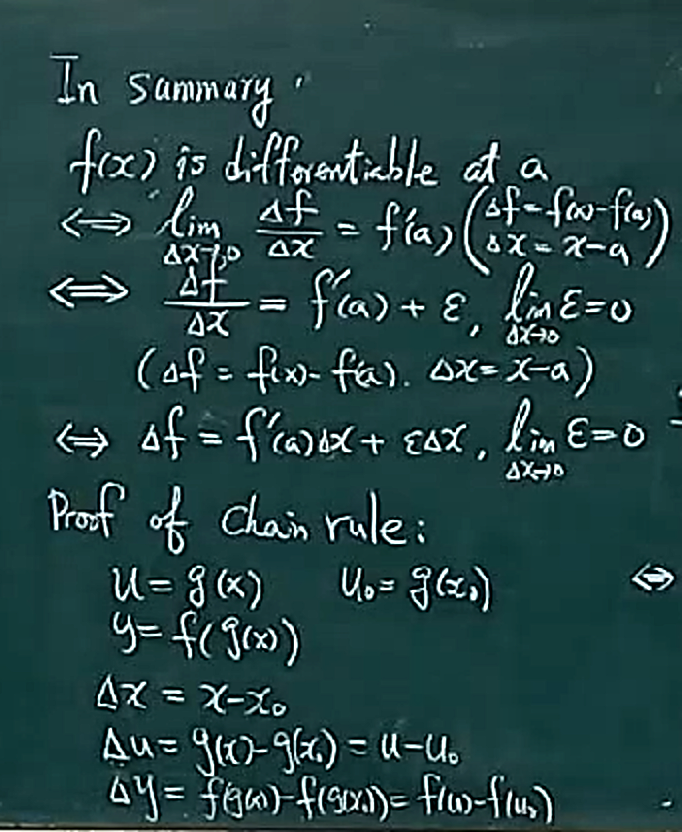 In Sammary.
f(x) is differentiable at a
⟺ lim_{Δx→0} Δf/Δx = f'(a) (Δf = f(x)-f(a) Δx = x-a)
⟺ Δf/Δx = f'(a) + ε, lim_{Δx→0} ε=0
(Δf = f(x)- f(a). Δx = x-a)
⟺ Δf = f'(a)Δx + εΔx, lim_{Δx→0} ε=0
Proof of chain rule:
u = g(x) u₀ = g(x₀) ⟺
y = f(g(x))
Δx = x-x₀
Δu = g(x)-g(x₀) = u-u₀
Δy = f(g(x))-f(g(x₀)) = f(u)-f(u₀)